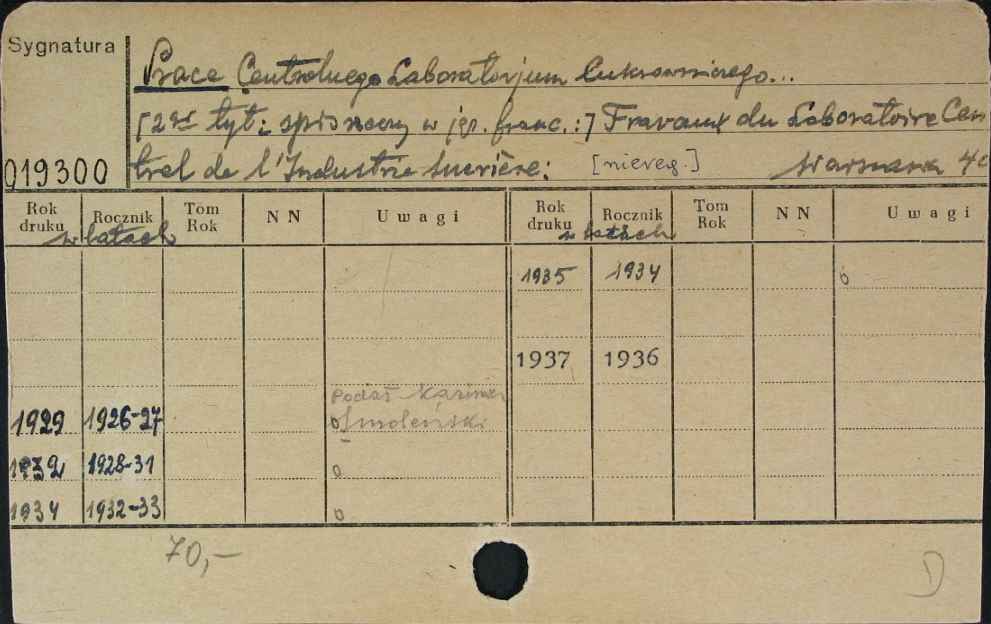 Sygnatura
Prace Centralnego Laboratorjum Cukrowniczego...
[2gi tyt: w jęz. franc.:] Travaux du Laboratoire Cen
019300 tral de l'Industrie sucrière: [niereg.] Warszawa 4°
Rok druku Rocznik Tom Rok NN Uwagi Rok druku Rocznik Tom Rok NN Uwagi
w latach w latach
1935 1934 o
1937 1936
Podał Kazimierz
1929 1926-27 o Smoleński
1932 1928-31 o
1934 1932-33 o
70,-
D